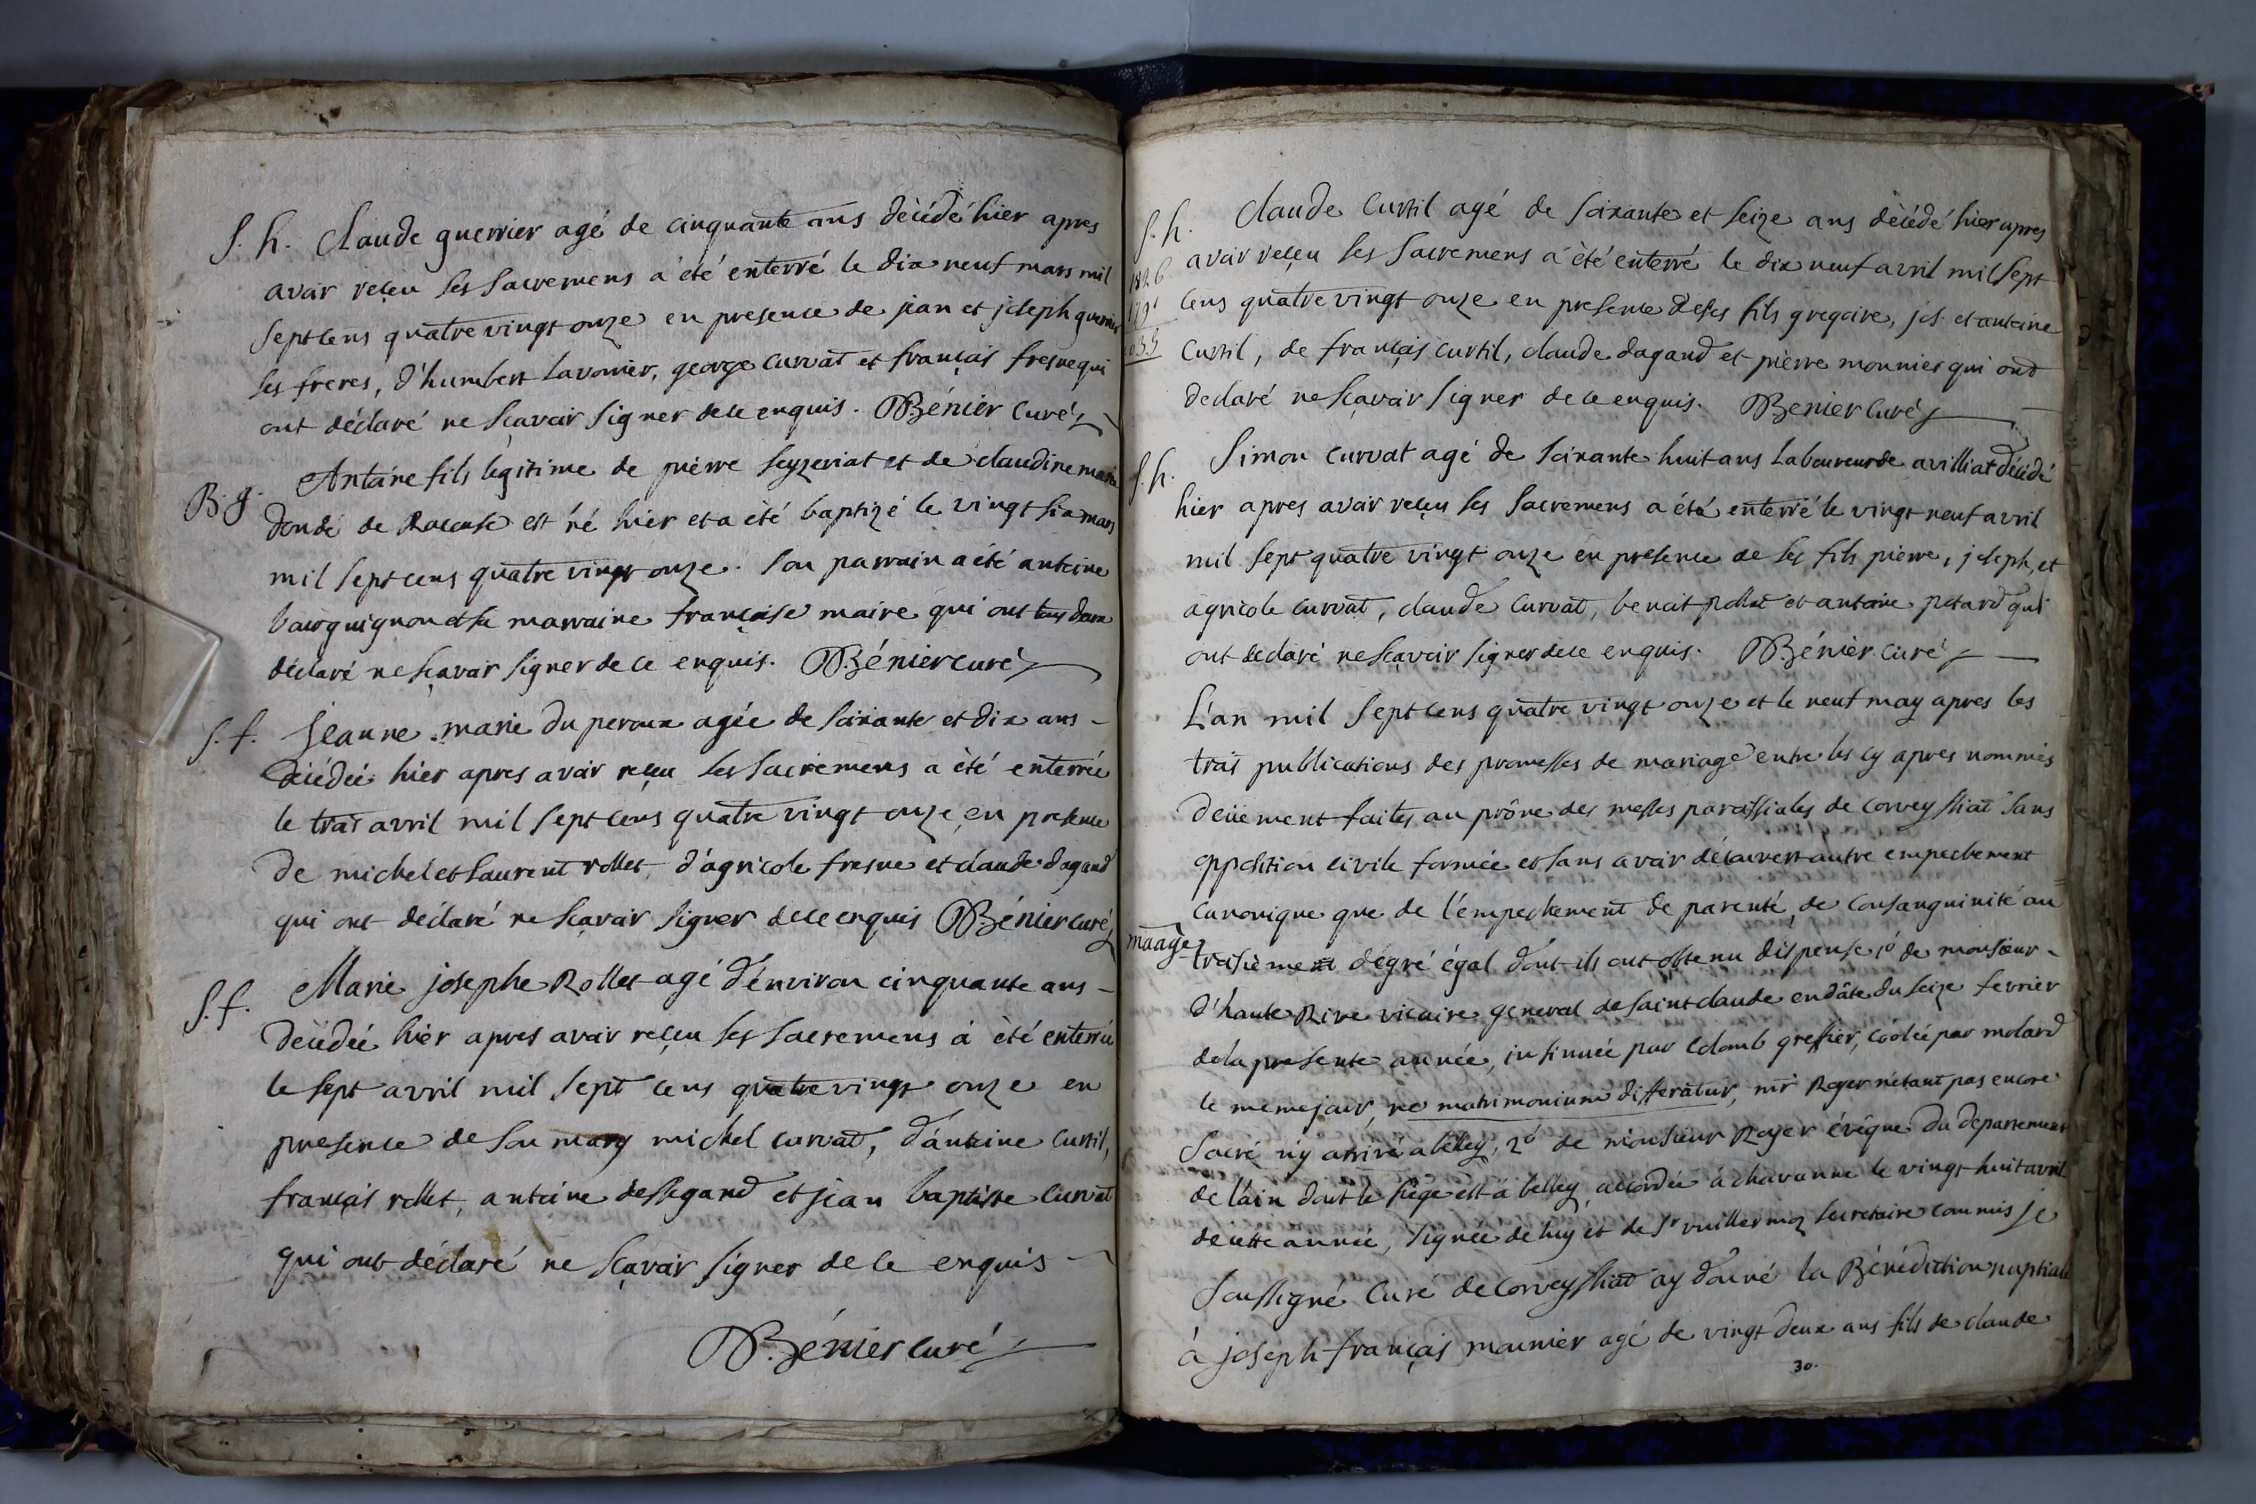 S. h. Claude guerrier agé de cinquante ans décédé hier apres
avoir reçeu les sacremens a été enterré le dix neuf mars mil
sept cens quatre vingt onze en presence de jean et joseph guerrier
ses freres, d'humbert Lavonier, george curvat et françois fresne qui
ont déclaré ne sçavoir signer de ce enquis. Bénier curé
B. g. Antoine fils legitime de pierre seyzeriat et de claudine marie
dondé de Racouse est né hier et a été baptizé le vingt six mars
mil sept cens quatre vingt onze. son parrain a été antoine
bourguignon et sa marraine françoise maire qui ont tous deux
déclaré ne sçavoir signer de ce enquis. Bénier curé
S. f. Jeanne marie du peroux agée de soixante et dix ans -
décédée hier apres avoir reçeu les sacremens a été enterrée
le trois avril mil sept cens quatre vingt onze en presence
de michel et laurent rollet, d'agricole fresne et claude dagand
qui ont déclaré ne sçavoir signer de ce enquis Bénier curé
S. f. Marie josephe Rollet agé d'environ cinquante ans -
décédée hier apres avoir reçeu les sacremens a été enterrée
le sept avril mil sept cens quatre vingt onze en
presence de son mary michel curvat, d'antoine curtil,
françois rollet, antoine dessegand et jean baptiste curvat
qui ont déclaré ne sçavoir signer de ce enquis -
Bénier curé
S. h. Claude Curtil agé de soixante et seize ans décédé hier apres
avoir reçeu les sacremens a été enterré le dix neuf avril mil sept
cens quatre vingt onze en presence de ses fils gregoire, jos. et antoine
Curtil, de françois curtil, claude dagand et pierre monnier qui ont
declaré ne sçavoir signer de ce enquis. Bénier Curé
1826
1791
035
S. h. Simon curvat agé de soixante huit ans laboureur de avilliat décédé
hier apres avoir reçeu les sacremens a été enterré le vingt neuf avril
mil sept quatre vingt onze en presence de ses fils pierre, joseph, et
agricole curvat, claude curvat, benoit pollet et antoine petard qui
ont declaré ne sçavoir signer de ce enquis. Bénier curé
L'an mil sept cens quatre vingt onze et le neuf may apres les
trois publications des promesses de mariage entre les cy apres nommés
deüement faites au prône des messes paroissiales de Corveyssiat sans
opposition civile formée et sans avoir découvert autre empechement
Canonique que de l'empechement de parenté, de consanguinité au
maage troisième dégré égal dont ils ont obtenu dispense 1° de monsieur -
d'haute Rive vicaire general de saint claude en dâte du seize fevrier
de la presente année, insinuée par Colomb greffier, coolée par molard
le meme jour, ne matrimonium differatur, mr Royer n'étant pas encore
sacré n'y arrivé a belley, 2° de monsieur Royer évêque du departement
de l'ain dont le siege est à belley accordée à chavanne le vingt huit avril
de cette année, signée de luy et de Sr vuillermoz secretaire commis Je
soussigné Curé de Corveyssiat ay donné la Bénédiction nuptiale
à joseph françois mounier agé de vingt deux ans fils de claude
30.